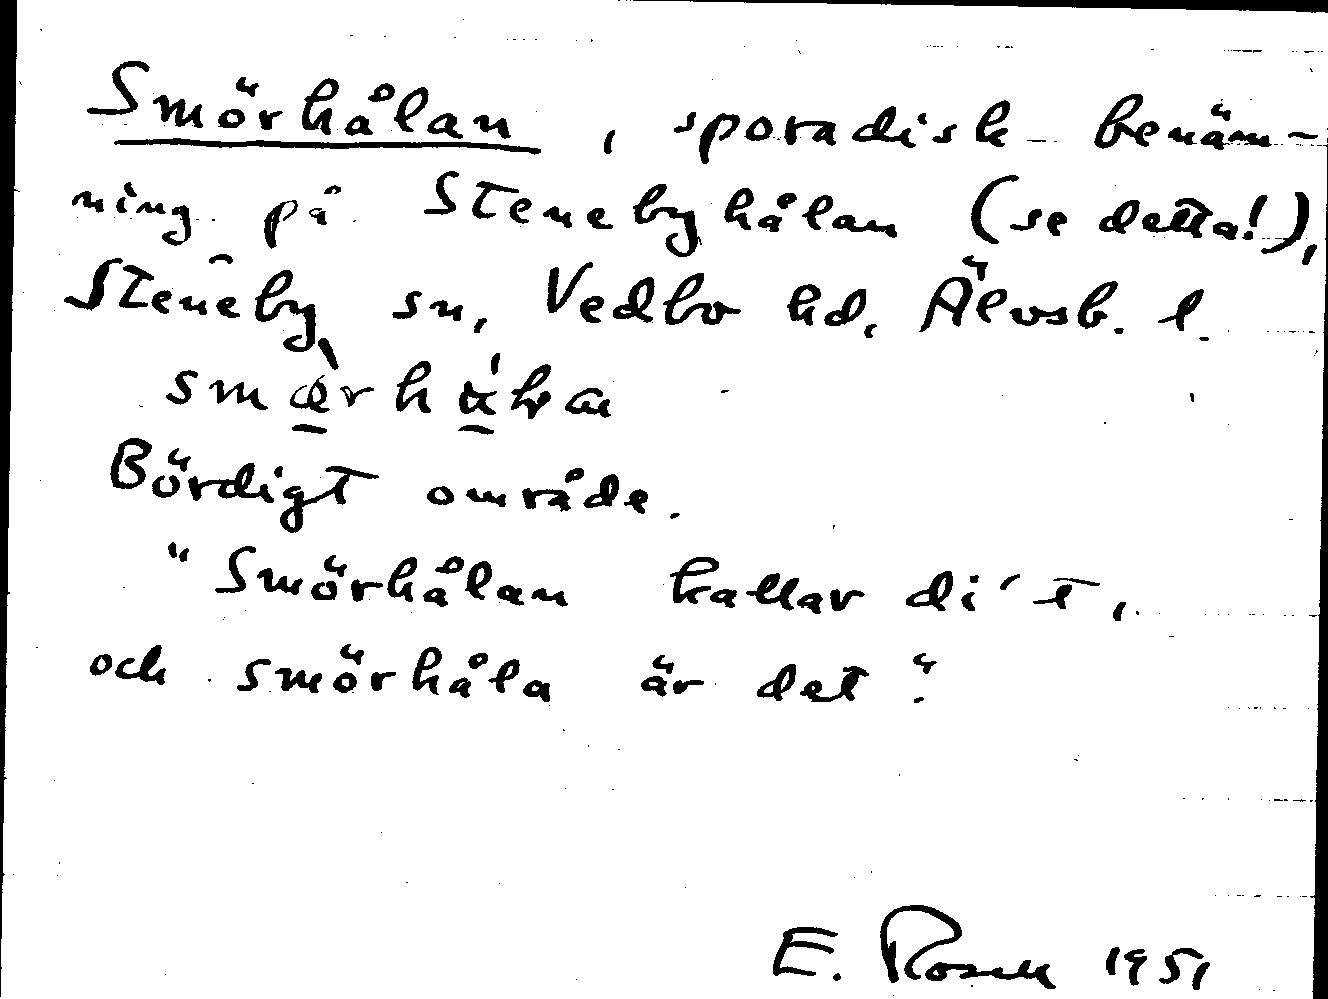 Smörhålan, sporadisk benäm-
ning på Stenebyhålan (se detta!),
Steneby sn, Vedbo hd, Älvsb. l.
Bördigt område.
"Smörhålan kallar di't,
och smörhåla är det".
E. Rosell 1951